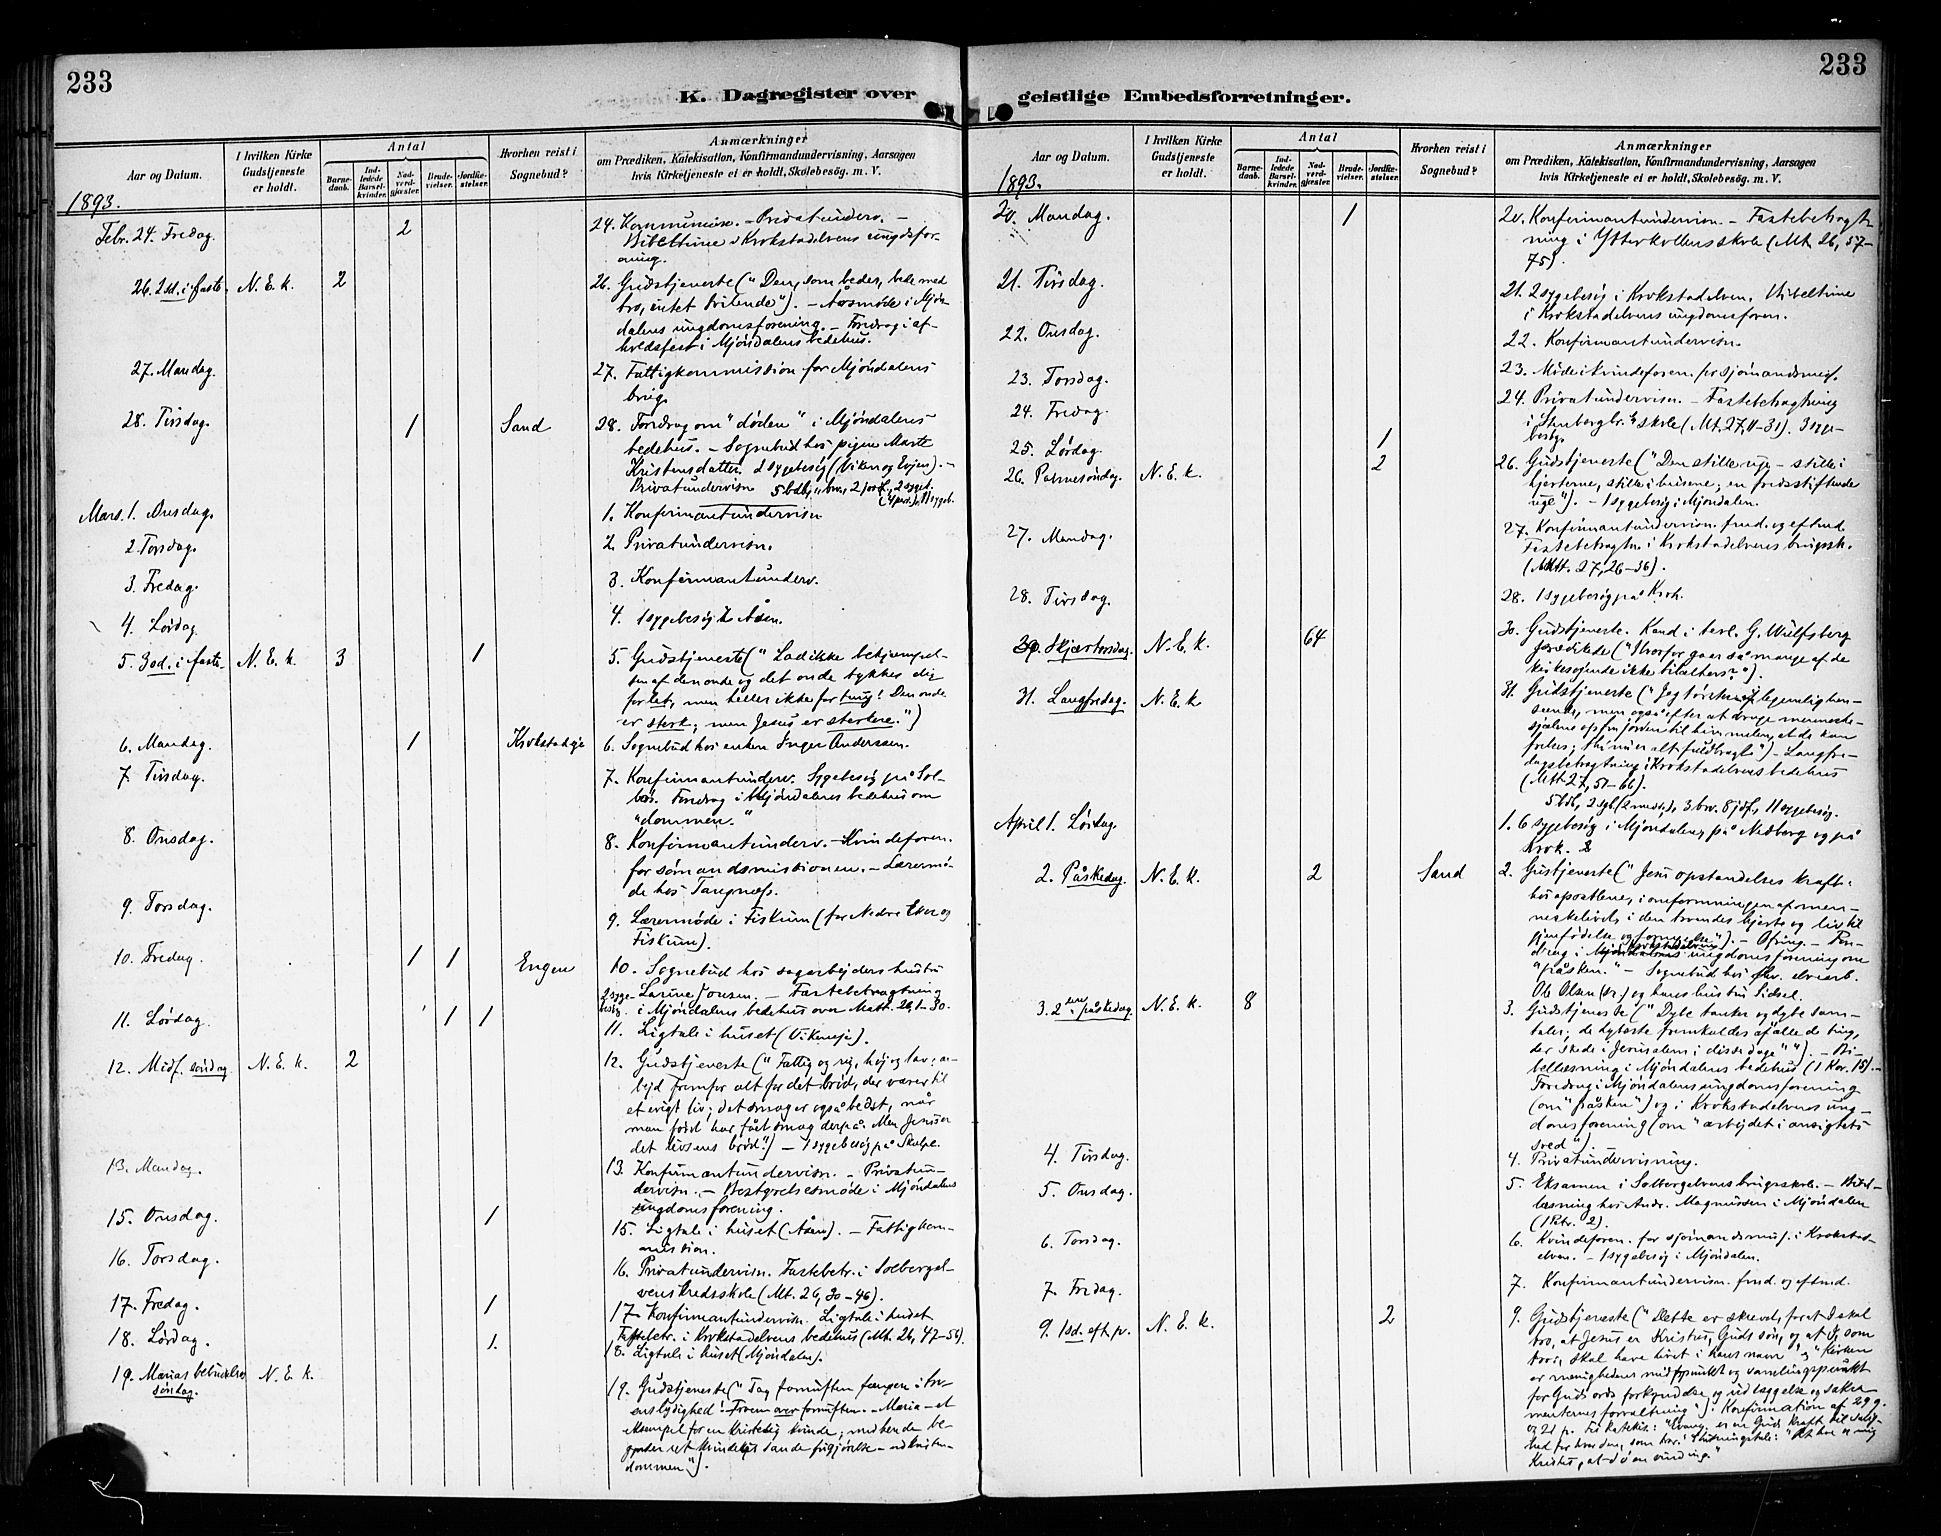 233
K. Dagregister over
Aar og Datum.
I hvilken Kirke
Gudstjeneste
er holdt.
Antal
Barne-
daab.
Ind-
ledede
Barsel-
kvinder.
Nad-
verd-
gjæster.
Brude-
vielser.
Jordfæ-
stelser.
Hvorhen reist i
Sognebud?
Anmærkninger
om Prædiken, Katekisation, Konfirmandundervisning, Aarsagen
hvis Kirketjeneste ei er holdt, Skolebesøg. m. V.
1893.
Febr. 24. Fredag. 2 24. Kommunion. – Privatunderv. –
Bibeltime i Krokstadelvens ungdsfor-
ening.
26. 2 sd. i faste. N. E. k. 2 26. Gudstjeneste ("Den, som beder, bede med
tro, intet tvilende"). – Årsmøde i Mjøn-
dalens ungdomsforening. – Foredrag i af-
holdsfest i Mjøndalens bedehus.
27. Mandag. 27. Fattigkommission for Mjøndalens
brug.
28. Tirsdag. 1 Sand 28. Foredrag om "døden" i Mjøndalens
bedehus. – Sognebud hos pigen Marte
Kristensdatter. 2 sygebesøg (Viken og Evjen). –
Privatundervisn
Mars. 1. Onsdag. 1. Konfirmantundervisn
2. Torsdag. 2. Privatundervisn.
3. Fredag. 3. Konfirmantunderv.
4. Lørdag 4. 1 sygebesøg i Åsen.
5. 3 sd. i faste. N. E. k. 3 1 5. Gudstjeneste ("Lad ikke bekjæmpel-
sen af den onde og det onde tykkes dig
for let, men heller ikke for tung! Den onde
er sterk; men Jesus er sterkere.")
6. Mandag. 1 Krokstadeje 6. Sognebud hos enken Inger Anderssen.
7. Tirsdag. 7. Konfirmantunderv. Sygebesøg på Sol-
berg. Foredrag i Mjøndalens bedehus om
"dommen."
8. Onsdag. 8. Konfirmantunderv. – Kvindeforen.
for sømandsmissionen. – Lærermø-
de hos Tangnæs.
9. Torsdag. 9. Lærermøde i Fiskum (for Nedre Eker og
Fiskum).
10. Fredag. 1 1 Engen 10. Sognebud hos sagarbejders hustru
Larine Jonsen. – Fastebetragtning
i Mjøndalens bedehus over Matt. 26, 1–30.
11. Lørdag. 1 1 11. Ligtale i huset (Vikeneje).
12. Midf. søndag N. E. k. 2 12. Gudstjeneste ("Fattig og rig, høj og lav: ar-
bejd fremfor alt for det brød, der varer til
et evigt liv; det smager også bedst, når
man først har fået smag derpå. Men Jesus er
det livsens brød.") – 1 sygebesøg på Skalpe.
13. Mandag. 13. Konfirmantundervisn. – Privatun-
dervisn. – Bestyrelsesmøde i Mjøndalens
ungdomsforening.
15. Onsdag. 1 15. Ligtale i huset (Åsen). – Fattigkom-
mission.
16. Torsdag. 16. Privatundervisn. Fastebetr. i Solbergel-
vens kredsskole (Mt. 26, 30–46).
17. Fredag. 1 17. Konfirmantundervisn. Ligtale i huset
Fastebetr. i Krokstadelvens bedehus (Mt. 26, 47–56).
18. Lørdag. 1. 18. Ligtale i huset (Mjøndalen).
19. Marias bebudelses N. E. k.
søndag.
19. Gudstjeneste ("Tag fornuften fangen i tro-
ens lydighed! Troen over fornuften. – Maria – et
eksempel for en kristelig kvinde; med hende be-
gynder ret kvindens sande frigjørelse – ved kristen-
dommen").
233
geistlige Embedsforretninger.
Aar og Datum.
I hvilken Kirke
Gudstjeneste
er holdt.
Antal
Barne-
daab.
Ind-
ledede
Barsel-
kvinder.
Nad-
verd-
gjæster.
Brude-
vielser.
Jordfæ-
stelser.
Hvorhen reist i
Sognebud?
Anmærkninger
om Prædiken, Katekisation, Konfirmandundervisning, Aarsagen
hvis Kirketjeneste ei er holdt, Skolebesøg. m. V.
1893.
20. Mandag. 1 20. Konfirmantundervisn. – Fastebetragt-
ning i Ytterkollens skole (Mt. 26, 57–
75).
21. Tirsdag. 21. 2 sygebesøg i Krokstadelven. Bibeltime
i Krokstadelvens ungdomsforen.
22. Onsdag. 22. Konfirmantundervisn.
23. Torsdag. 23. Møde i kvindeforen. for sjømandsmis.
24. Fredag. 24. Privatundervisn. – Fastebetragtning
i Stenberg br.s skole (Mt. 27, 11–31). 3 syge-
besøg.
25. Lørdag. 1
26. Palmesøndag. N. E. k. 2 26. Gudstjeneste ("Den stille uge – stille i
hjerterne, stille i husene; en fredsstiftende
uge"). – 1 sygebesøg i Mjøndalen.
27. Mandag. 27. Konfirmantundervisn. frmd. og eftmd.
Fastebetragtn. i Krokstadelvens brugssk.
(Matt. 27, 26–36).
28. Tirsdag. 28. 1 sygebesøg på Krok.
30. Skjærtorsdag. N. E. k. 64 30. Gudstjeneste. Kand. i teol. G. Wulfsberg
prædikede ("Hvorfor gaar så mange af de
kirkesøgende ikke til alters?").
31. Langfredag. N. E. k 31. Gudstjeneste ("Jeg tørster ej legemlig hen-
seende, men også efter at drage menneske-
sjælene op fra jorden til himmelen, at de kan
frelses; thi nu er alt fuldbragt") – Langfre-
dagsbetragtning i Krokstadelvens bedehus
(Mt. 27, 57–66).
5 bdb, 2 sgb (2 nadv.), 3 brv. 8 jdf., 11 sygebesøg.
April 1. Lørdag. 1. 6 sygebesøg i Mjøndalen, på Nedberg og på
Krok. 2
2. Påskedag. N. E. k. 2 Sand 2. Gustjeneste ("Jesu opstandelses kraft:
hos apostlene, i omformningen af men-
neskelivet, i den troendes hjerte og liv til
gjenfødelse og fornyelse"). – Ofring. – Fore-
drag i Krokstadelvens ungdomsforening om
"påsken." – Sognebud hos elvearb.
Ole Olsen (br.) og hans hustru Sidsel.
3. 2den påskedag N. E. k. 8 3. Gudstjeneste ("Dybe tanker og dybe sam-
taler; de dybeste fremkaldes af alle de ting,
der skede i Jerusalem i disse dage"). – Bi-
bellæsning i Mjøndalens bedehus (1 Kor. 15). –
Foredrag i Mjøndalens ungdomsforening
(om "påsken") og i Krokstadelvens ung-
domsforening (om "arbejdet i ansigtets
sved").
4. Tirsdag. 4. Privatundervisning.
5. Onsdag. 5. Eksamen i Solbergelvens brugsskole. – Bibel-
læsning hos Andr. Magnussen i Mjøndalen
(1 Petr. 2).
6. Torsdag. 6. Kvindeforen. for sjømandsmis. i Krokstad-
elven. – 1 sygebesøg i Mjøndalen.
7. Fredag. 7. Konfirmantundervisn. frmd. og eftmd.
9. 1 sd. eft. p. N. E. k. 2 9. Gudstjeneste ("Dette er skrevet, for at I skal
tro, at Jesus er Kristus, Guds søn, og at I, som
tror, skal have livet i hans navn" og "Kirken
er menighedens midtpunkt og samlingspunkt
for Guds ords forkyndelse og udlæggelse og sakra-
menternes forvaltning"). Konfirmation af 29 g.
og 21 p. Evang. er en Guds kraft til salig-
hed for hver den, som tror. Slutningstale: "At leve er mig
Kristus, at dø en vinding."